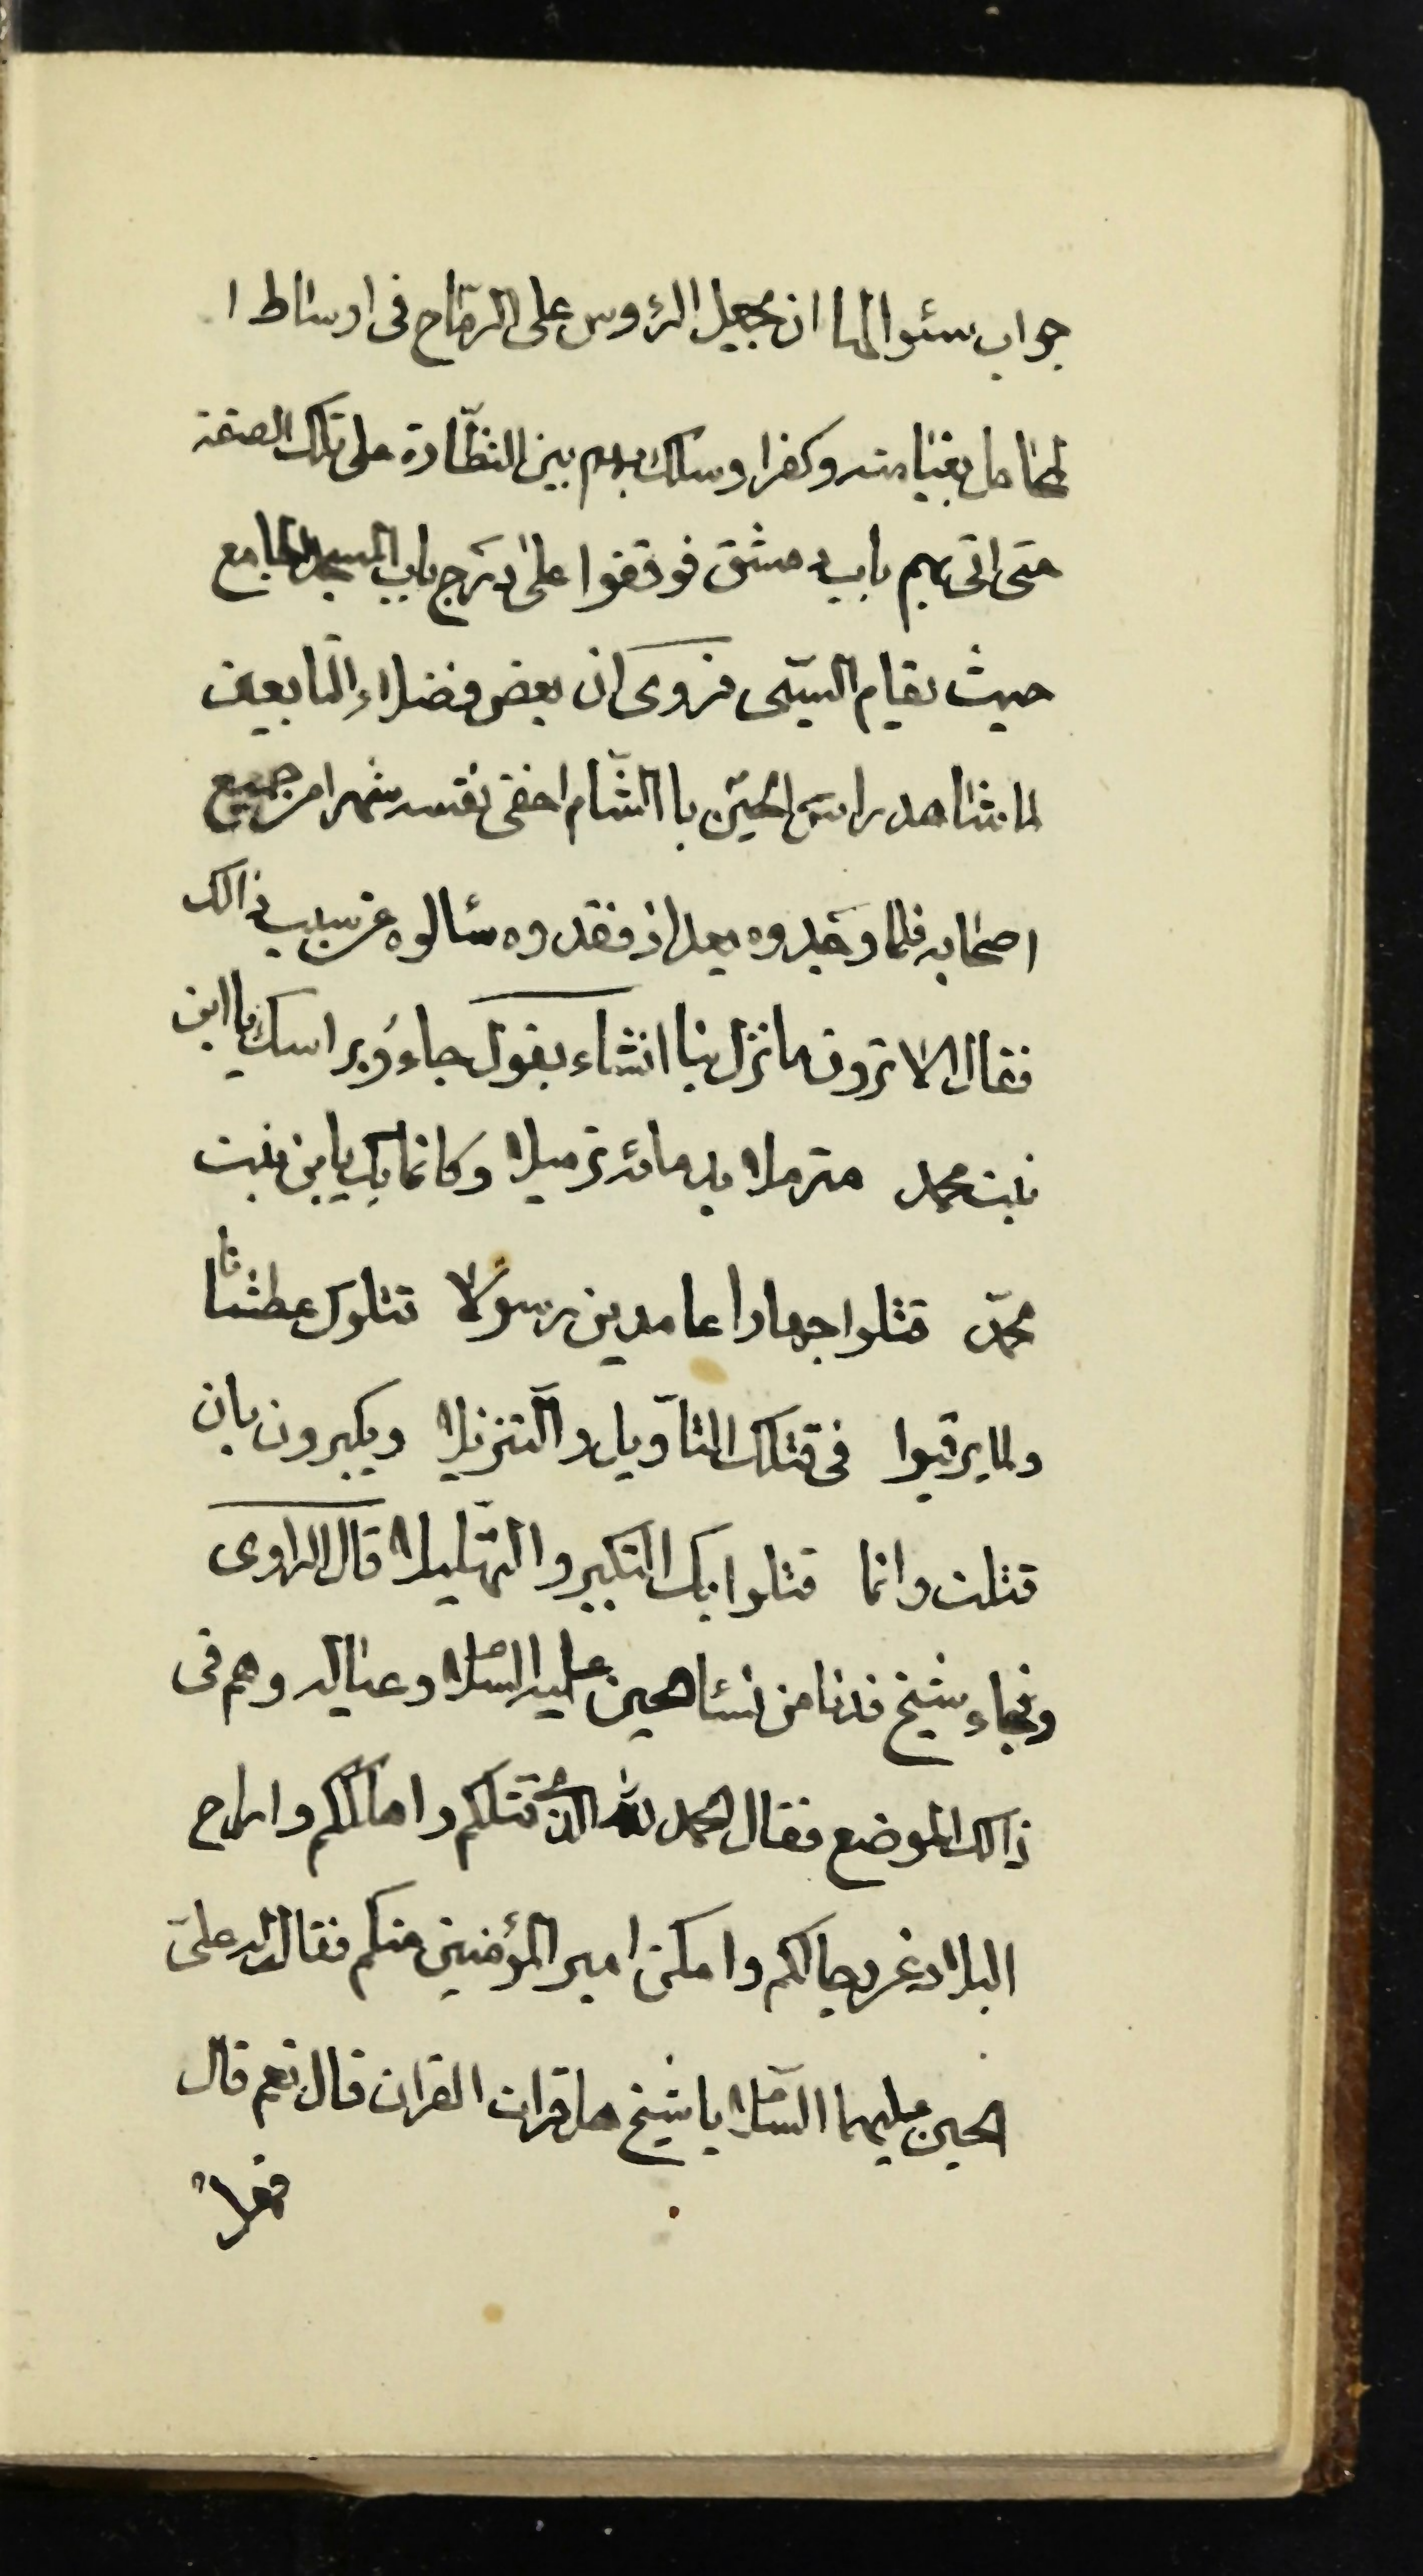 جواب سئوالها ان يجعل الرؤس على الرماح فى اوساط ا
لمحامل بغيا منه وكفرا وسلك بهم بين النظارة على تلك الصفة
حتى اتى بهم باب دمشق فوقفوا على درج باب المسجد الجامع
حيث يقام السبى فروى ان بعض فضلاء التابعين
لما شاهد راس الحسين باالشام اخفى نفسه شهرا من جميع
اصحابه فلما وجدوه بعد اذ فقدوه سئالوه عن سبب ذالك
فقال الا ترون ما نزل بنا انشاء يقول جاءوُ براسك يا ابن
بنت محمد مترملا بدمائه ترميلا وكانما بك يابن بنت
محمّد قتلوا جهارا عامدين رسولا قتلوك عطشانا
ولما يرقبوا فى قتلك التاويل والتنزيلا ويكبرون بان
قتلت وانما قتلوا بك التكبير والتهليلا قال الراوى
وجاء شيخ فدنا من نساء الحسين عليه السّلام وعياله وهم فى
ذالك الموضع فقال الحمد لله الذى قتلكم واهلككم واراح
البلاد عن رجالكم وامكن امير المؤمنين منكم فقال له على
الحسين عليهما السّلام يا شيخ هل قرات القران قال نعم قال
فهلا